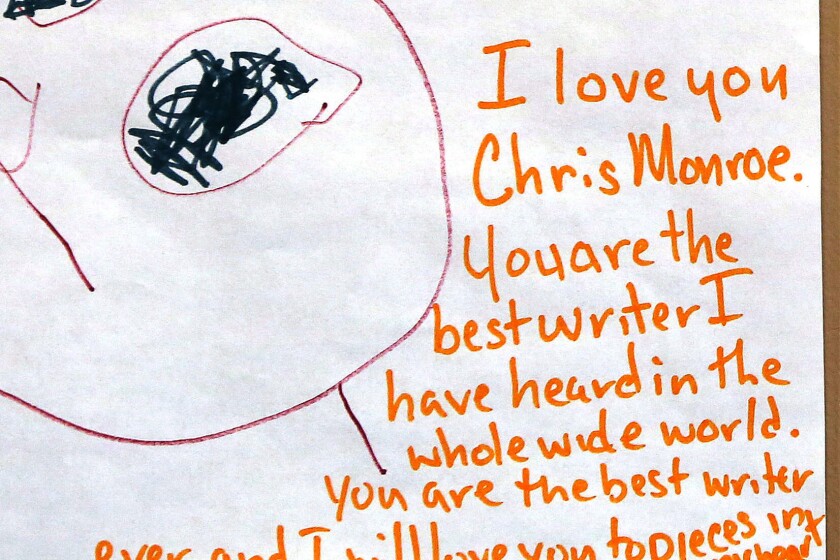 I love you
Chris Monroe.
You are the
best writer I
have heard in the
whole wide world.
You are the best writer
ever and I will love you to pieces in